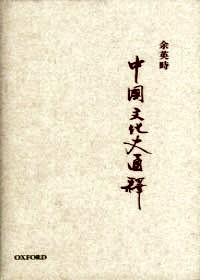 余英時
中國文化史通釋
OXFORD